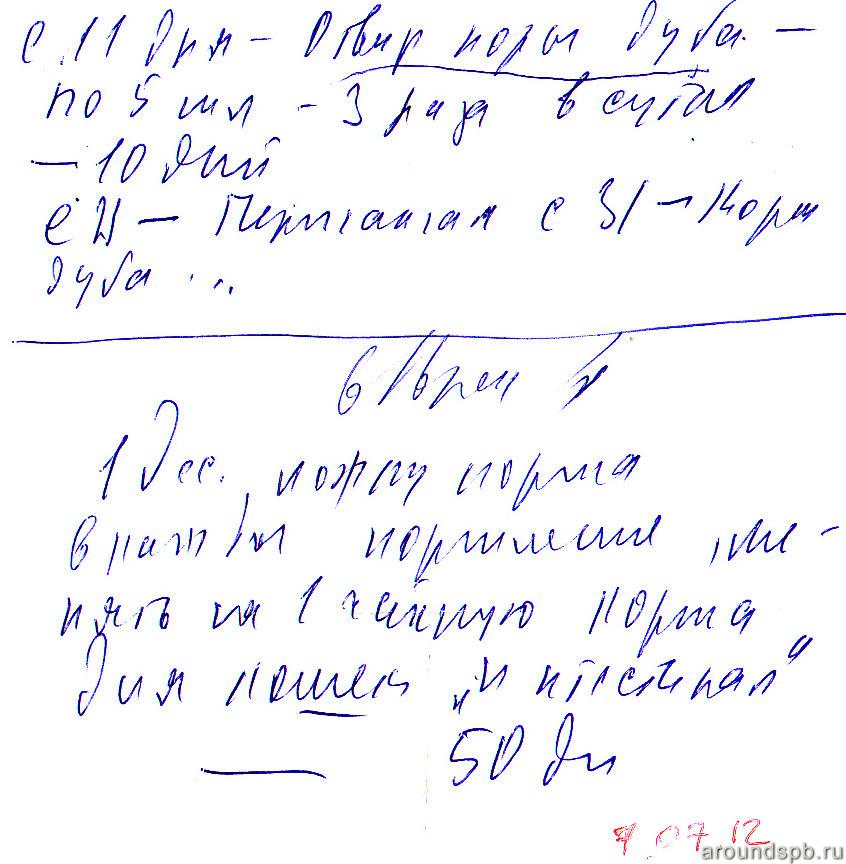 с 11 дня - Отвар коры дуба. -
по 5 мл - 3 раза в сутки
- 10 дней
с 21 - Перманганат с 31 - Кора
дуба ...
1 дес. ложку корма
в каждом кормлении, ме-
нять на 1 чайную корма
для кошек "Интестинал"
50 дн
7.07.12
aroundspb.ru